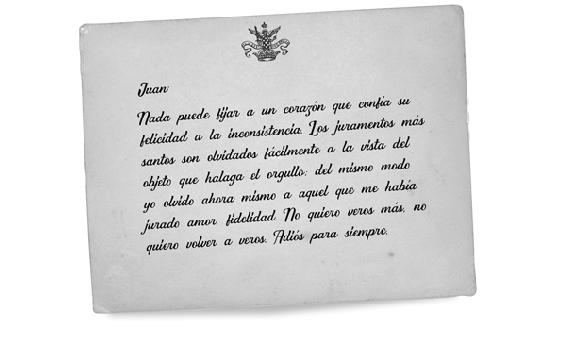 Juan
Nada puede fijar a un corazón que confía su
felicidad a la inconsistencia. Los juramentos más
santos son olvidados fácilmente a la vista del
objeto que halaga el orgullo; del mismo modo
yo olvido ahora mismo a aquel que me había
jurado amor, fidelidad. No quiero veros más, no
quiero volver a veros. Adiós para siempre.